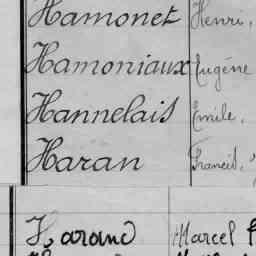 Hamonet Henri,
Hamoniaux Eugène
Hannelais Emile,
Haran Francis,
Harand Marcel